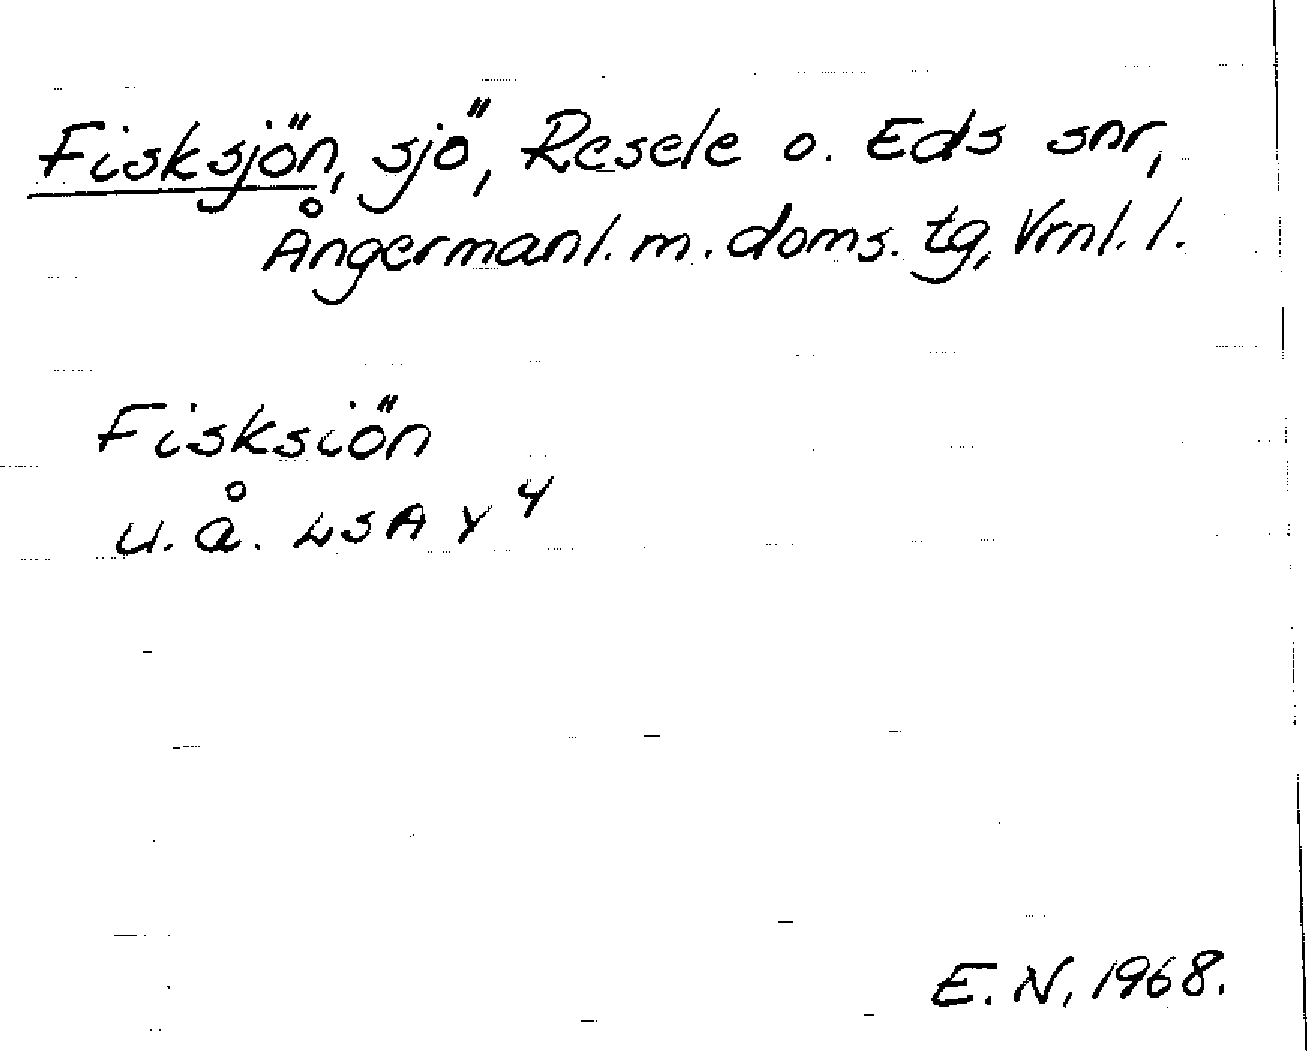 Fisksjön, sjö, Resele o. Eds snr,
Ångermanl. m. doms. tg, Vrnl. l.
Fisksiön
u.å. LSA Y 4
E. N, 1968.